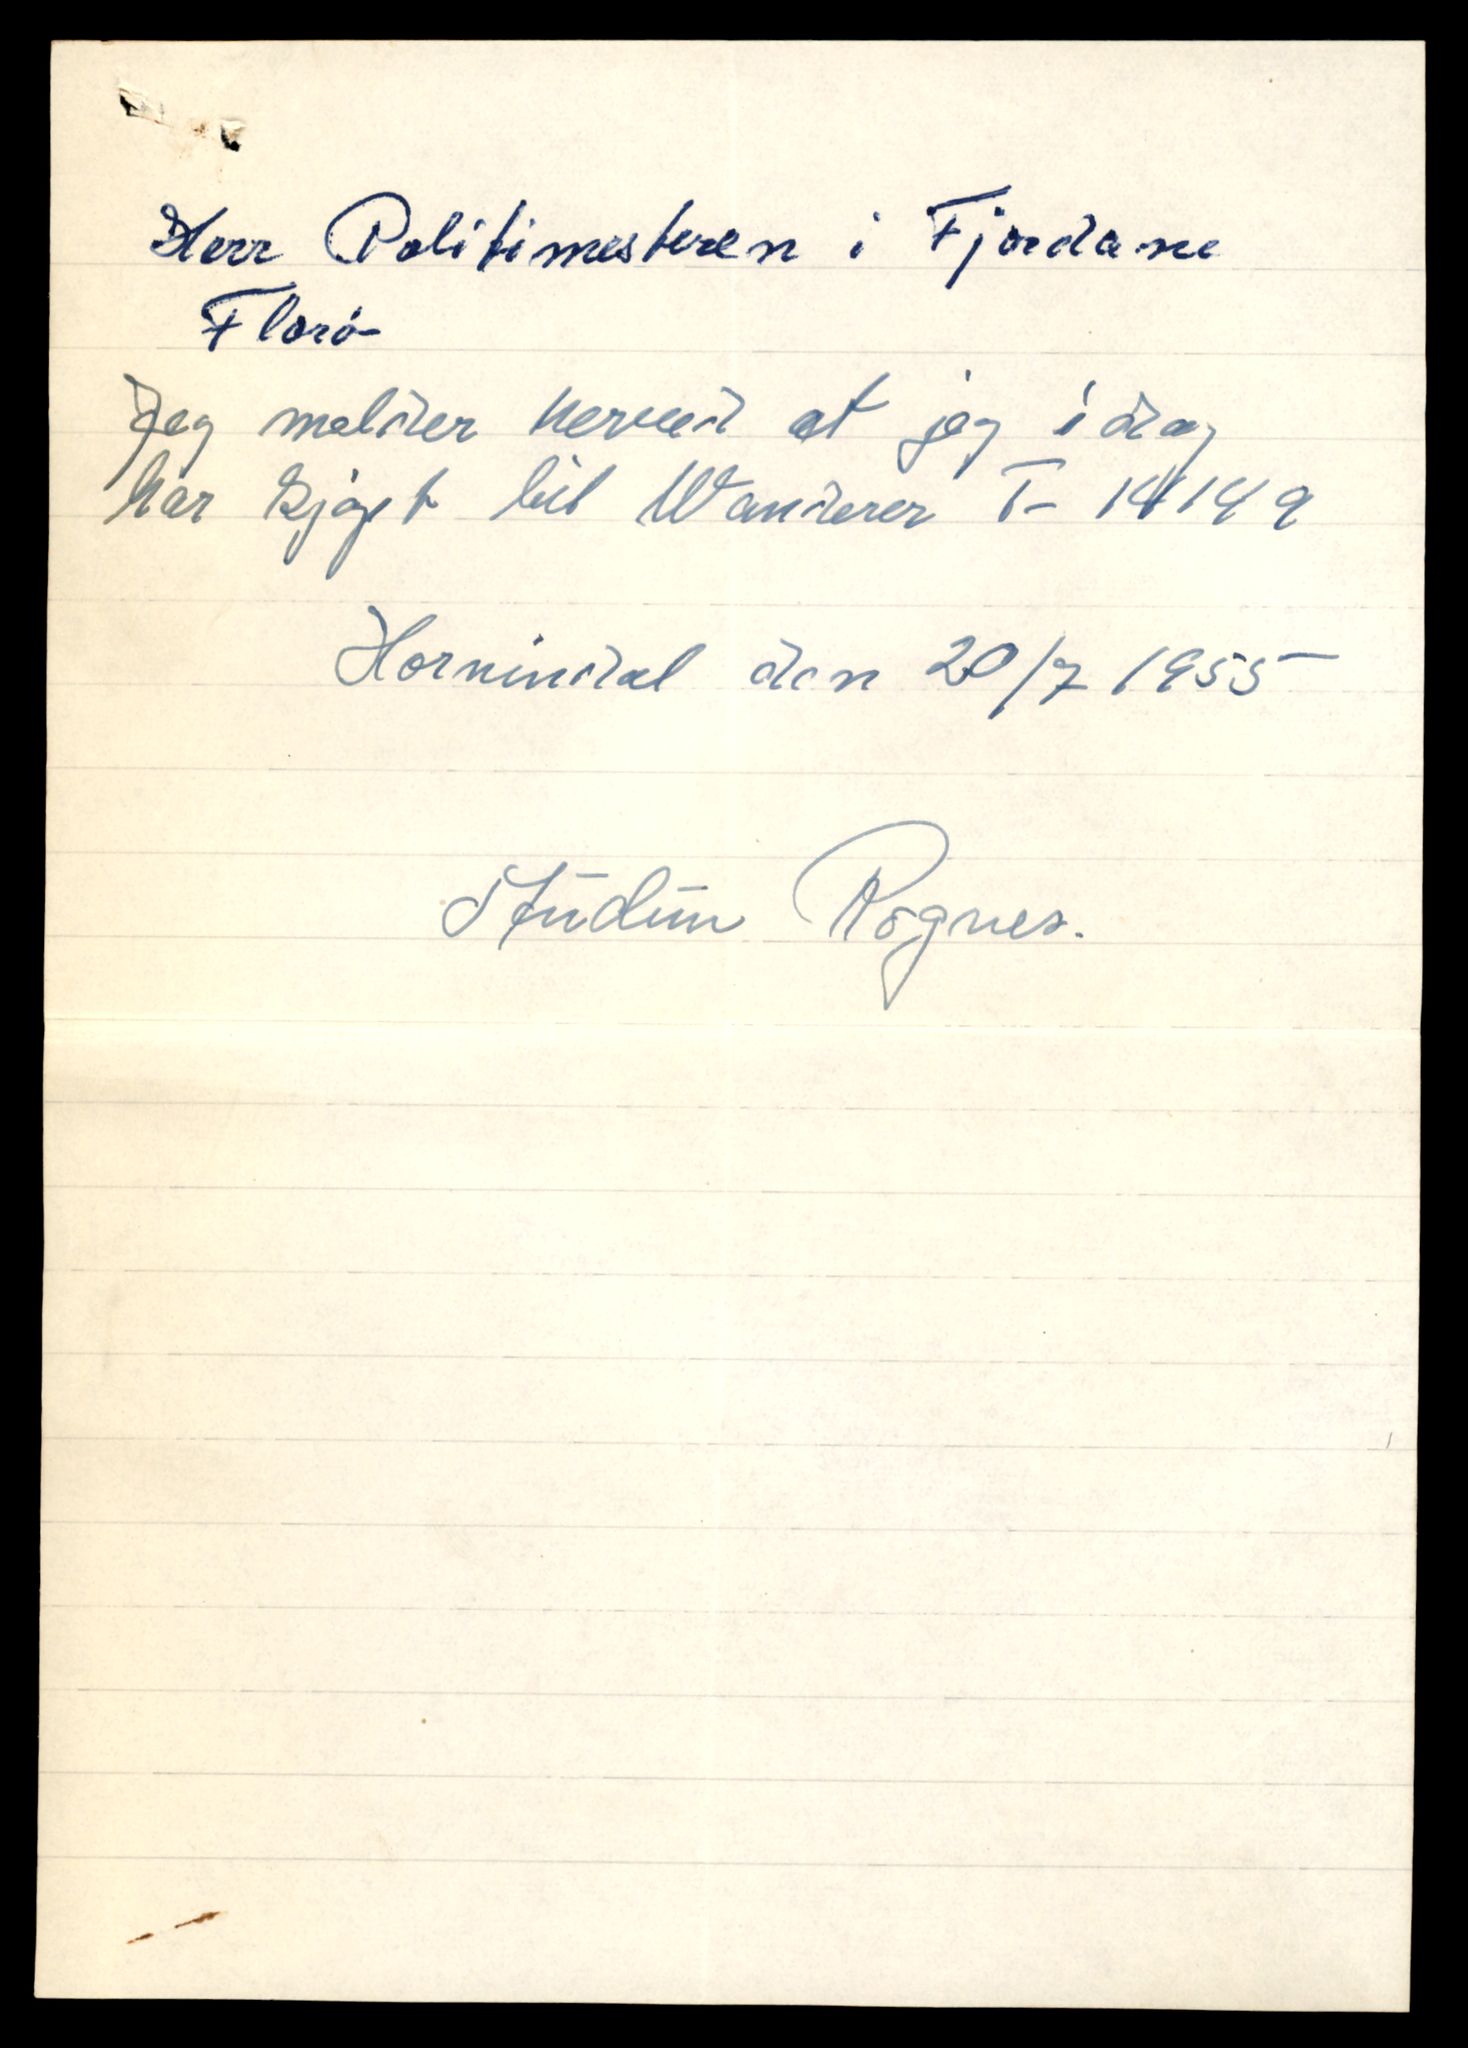 Herr Politimesteren i Fjordane
Florö
Jeg melder herved at jeg idag
har kjøpt bil Wanderer T- 14149
Hornindal den 20/7 1955
Rognes.